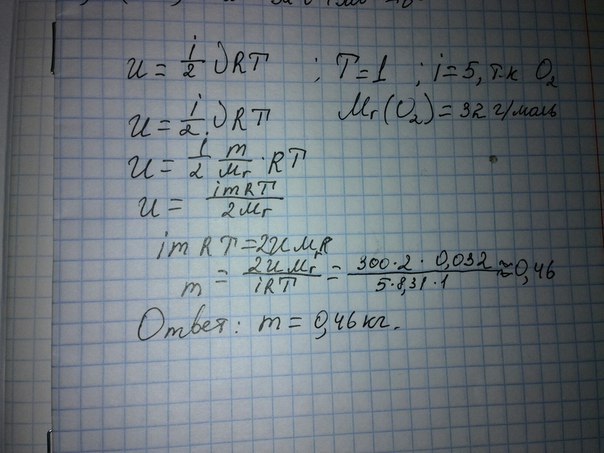 U = i/2 νRT ; T=1 ; i=5, т.к O₂
U = i/2 νRT Mr(O₂) = 32 г/моль
U = i/2 m/Mr · RT
U = imRT/2Mr
imRT=2UMrR
m = 2UMr/iRT = 300·2·0,032/5·8,31·1 ≈ 0,46
Ответ: m = 0,46 кг.